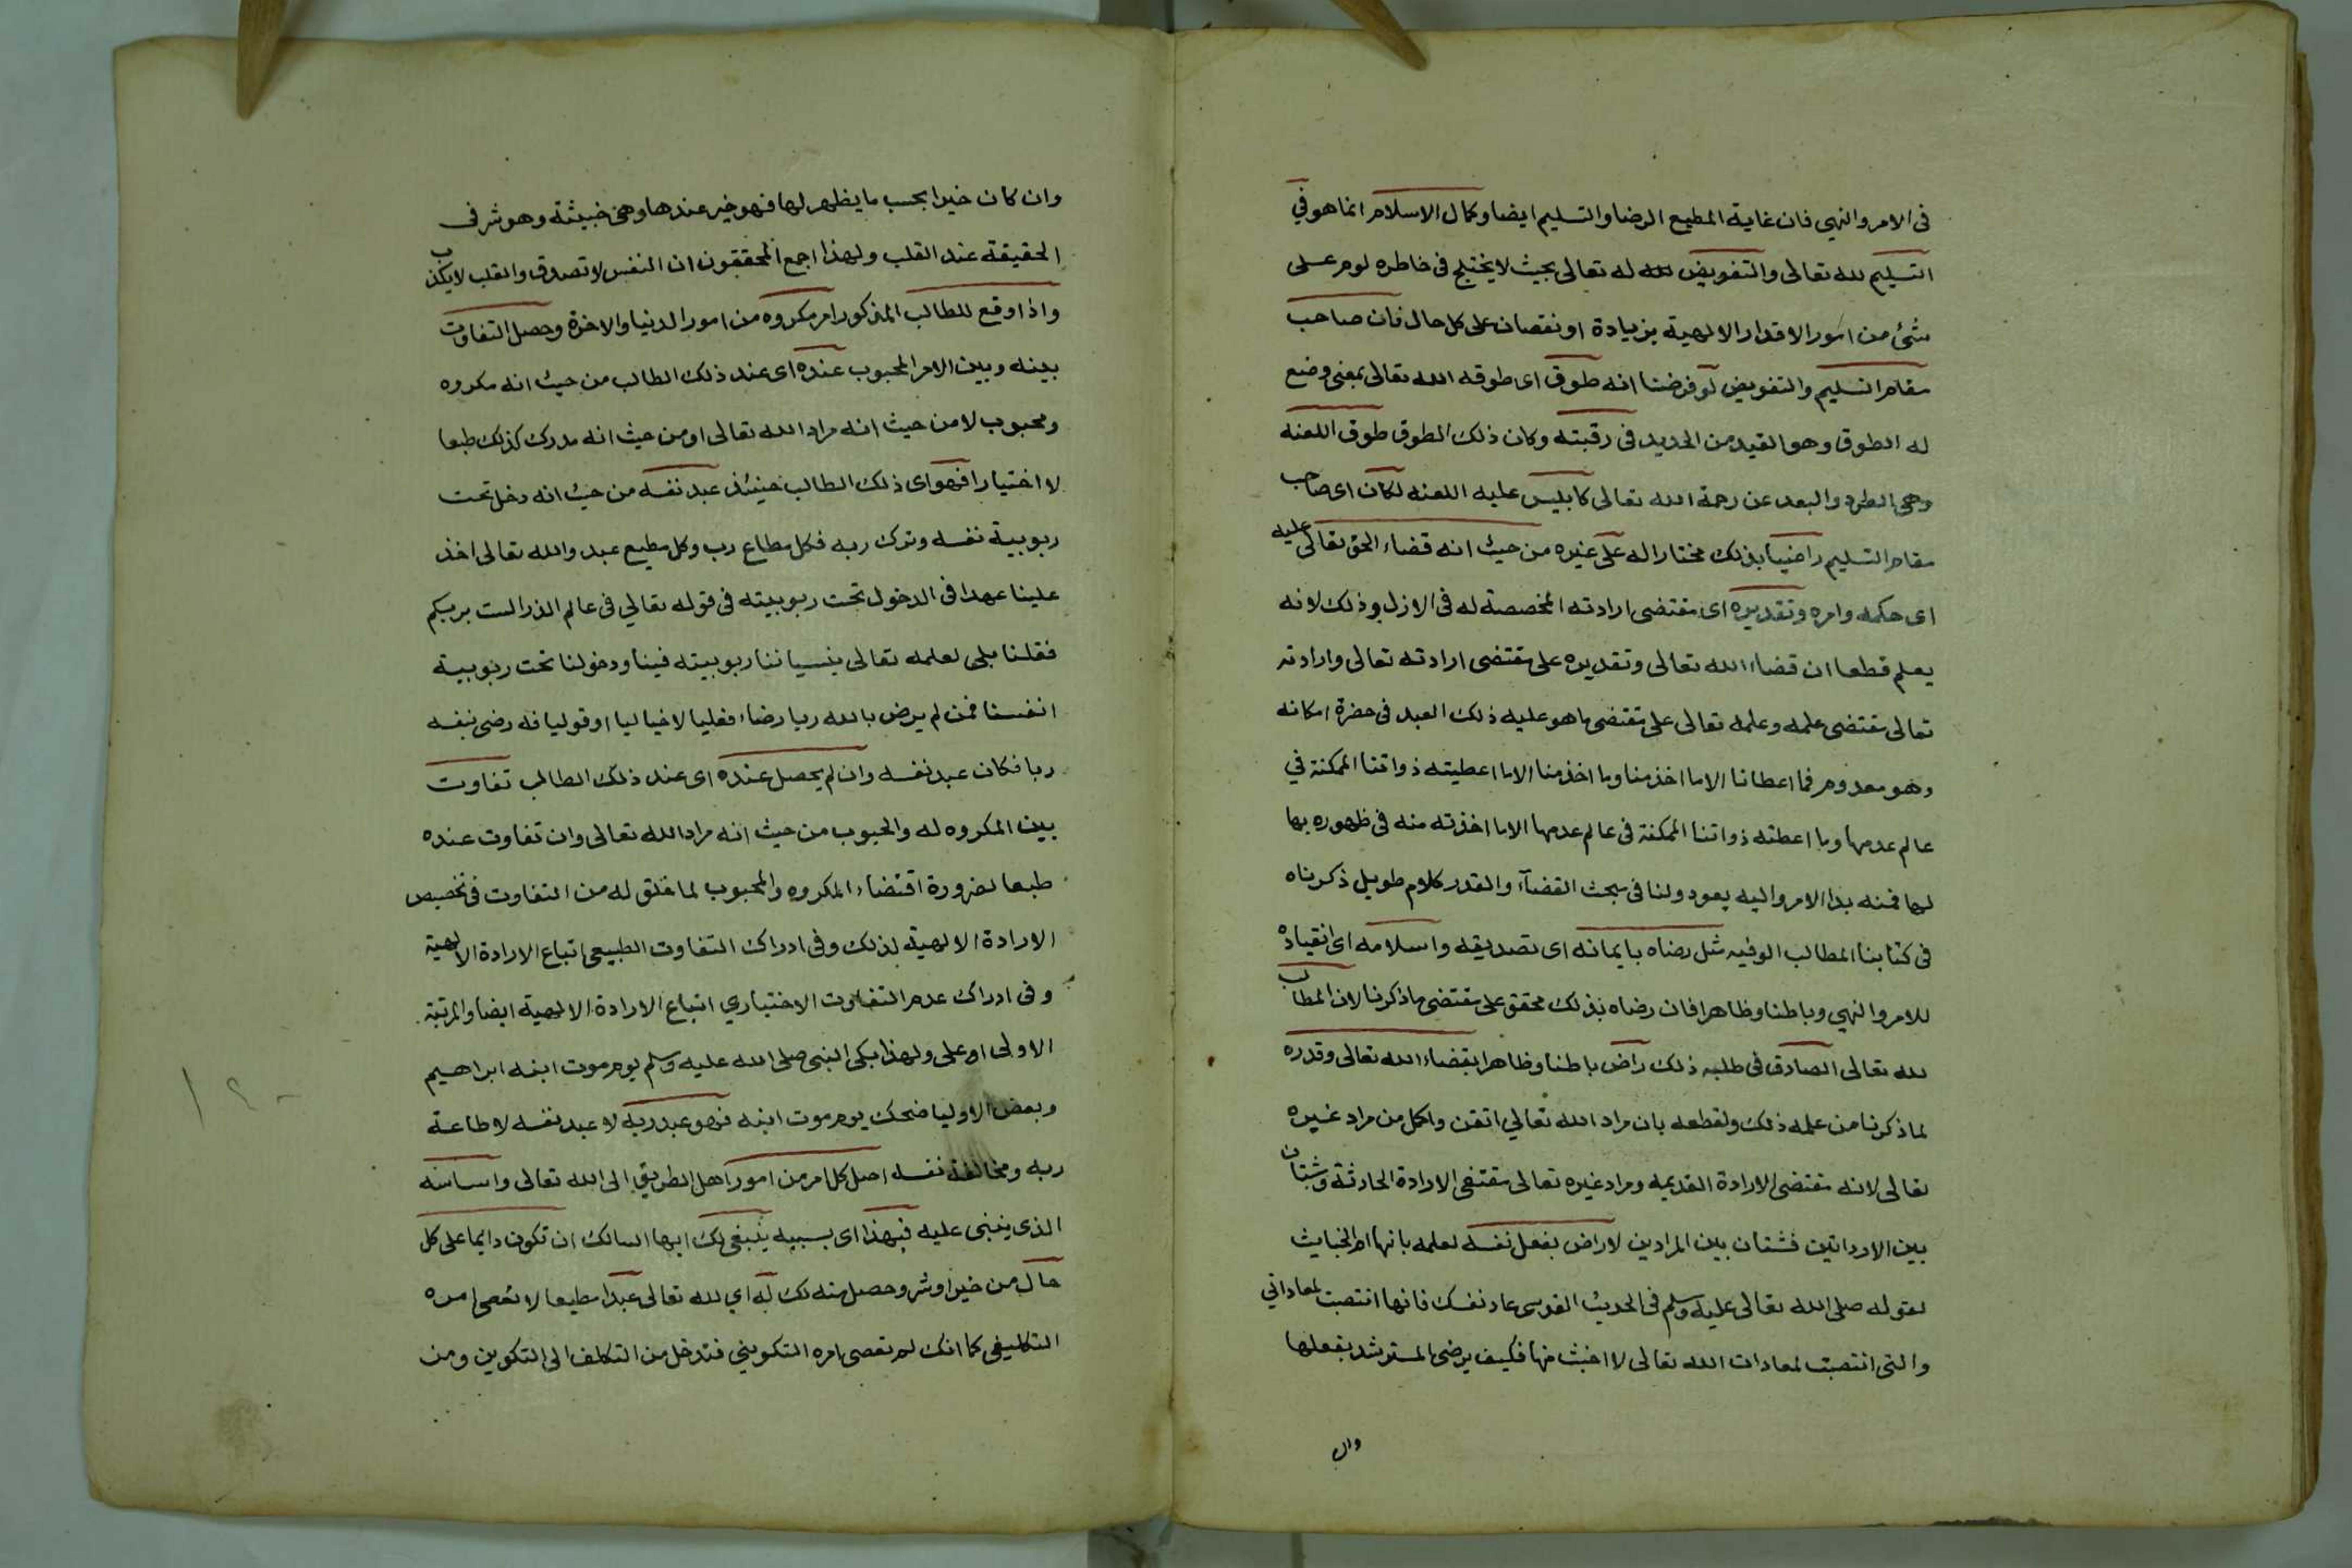 فى الامر والنهي فان غاية المطيع الرضا والتسليم ايضا وكمال الاسلام انما هو في
التسليم لله تعالى والتفويض له تعالى بحيث لا يختلج فى خاطره لوم على
شئ من امور الاقدار الالهية بزيادة او نقصان على كل حال فان صاحب
مقام التسليم والتفويض لو فرضنا انه طوق اى طوقه الله تعالى بمعنى وضع
له الطوق وهو القيد من الحديد فى رقبته وكان ذلك الطوق طوق اللعنه
وهى الطرد والبعد عن رحمة الله تعالى كابليس عليه اللعنه لكان اى صاحب
مقام التسليم راضيا بذلك مختارا له على غيره من حيث انه قضاء الحق تعالى عليه
اى حكمه وامره وتقديره اى مقتضى ارادته المخصصة له فى الازل وذلك لانه
يعلم قطعا ان قضاء الله تعالى وتقديره على مقتضى ارادته تعالى وارادته
تعالى مقتضى علمه وعلمه تعالى على مقتضى ما هو عليه ذلك العبد فى حضرة امكانه
وهو معدوم فما اعطانا الا ما اخذ منا وما اخذ منا الا ما اعطيته ذواتنا الممكنة في
عالم عدمها وما اعطته ذواتنا الممكنة فى عالم عدمها الا ما اخذته منه فى ظهوره بها
لها فمنه بدا الامر واليه يعود ولنا فى بحث القضآء والقدر كلام طويل ذكرناه
فى كتابنا المطالب الوفيه مثل رضاه بايمانه اى تصديقه واسلامه اى انقياده
للامر والنهي وباطنا وظاهرا فان رضاه بذلك محقق على مقتضى ما ذكرنا لان الطالب
لله تعالى الصادق فى طلبه ذلك راض باطنا وظاهرا بقضاء الله تعالى وقدره
لما ذكرنا من علمه ذلك ولقطعه بان مراد الله تعالي اتقن واكمل من مراد غيره
تعالى لانه مقتضى الارادة القديمه ومراد غيره تعالى مقتضى الارادة الحادثة وشتان
بين الارداتين فشتان بين المرادين لا راض بفعل نفسه لعلمه بانها ام الخبايث
لقوله صلى الله تعالى عليه وسلم فى الحديث القدسى عاد نفسك فانها انتصبت لمعاداتي
والتى انتصبت لمعادات الله تعالى لا اخبث منها فكيف يرضى المسترشد بفعلها
وان
وان كان خيرا بحسب ما يظهر لها فهو خير عندها وهى خبيثة وهو شر فى
الحقيقة عند القلب ولهذا اجمع المحققون ان النفس لا تصدق والقلب لا يكذب
واذا وقع للطالب المذكور امر مكروه من امور الدنيا والاخرة وحصل التفاوت
بينه وبين الامر المحبوب عنده اى عند ذلك الطالب من حيث انه مكروه
ومحبوب لا من حيث انه مراد الله تعالى او من حيث انه مدرك كذلك طبعا
لا اختيارا فهو اى ذلك الطالب حينئذ عبد نفسه من حيث انه دخل تحت
ربوبية نفسه وترك ربه فكل مطاع رب وكل مطيع عبد والله تعالى اخذ
علينا عهدا فى الدخول تحت ربوبيته فى قوله تعالي فى عالم الذر الست بربكم
فقلنا بلى لعلمه تعالى بنسياننا ربوبيته فينا ودخولنا تحت ربوبية
انفسنا فمن لم يرض بالله ربا رضاء فعليا لا خياليا او قوليا فانه رضى بنفسه
ربا فكان عبد نفسه وان لم يحصل عنده اى عند ذلك الطالب تفاوت
بين المكروه له والمحبوب من حيث انه مراد الله تعالى وان تفاوت عنده
طبعا لضرورة اقتضاء المكروه والمحبوب لما خلق له من التفاوت فى تخصيص
الارادة الالهية لذلك وفى ادراك التفاوت الطبيعى اتباع الارادة الالهية
وفى ادراك عدم التفاوت الاختياري اتباع الارادة الالهية ايضا والمرتبة
الاولى اعلى ولهذا بكى النبى صلى الله عليه وسلم يوم موت ابنه ابراهيم
وبعض الاوليا ضحك يوم موت ابنه فهو عبد ربه لا عبد نفسه لاطاعة
ربه ومخالفة نفسه اصل كل امر من امور اهل الطريق الى الله تعالى واساسه
الذى ينبنى عليه فبهذا اى بسببه ينبغى لك ايها السالك ان تكون دايما على كل
حال من خير او شر وحصل منه لك له اي لله تعالى عبدا مطيعا لا تعصى امره
التكليفى كما انك لم تعصى امره التكوينى فتدخل من التكلف الى التكوين ومن